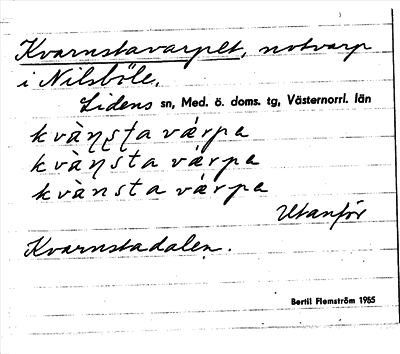 Kvarnstavarpet, notvarp
i Nilsböle.
Lidens sn, Med. ö. doms. tg, Västernorrl. län
kvàṇṣta vàrpe
kvàṇsta vàrpe
kvànsta vàrpe
Utanför
Kvarnstadalen.
Bertil Flemström 1965